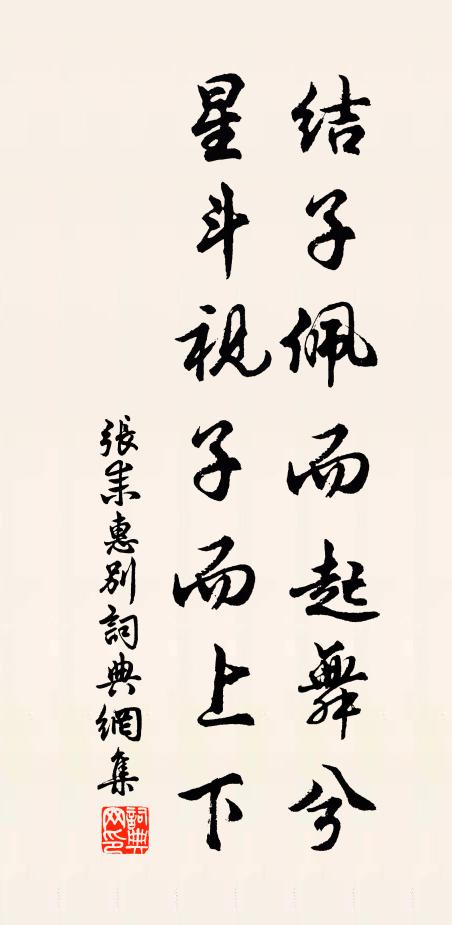 結子佩而起舞兮
星斗視子而上下
張耒惠別詞典網集
詞典
网印